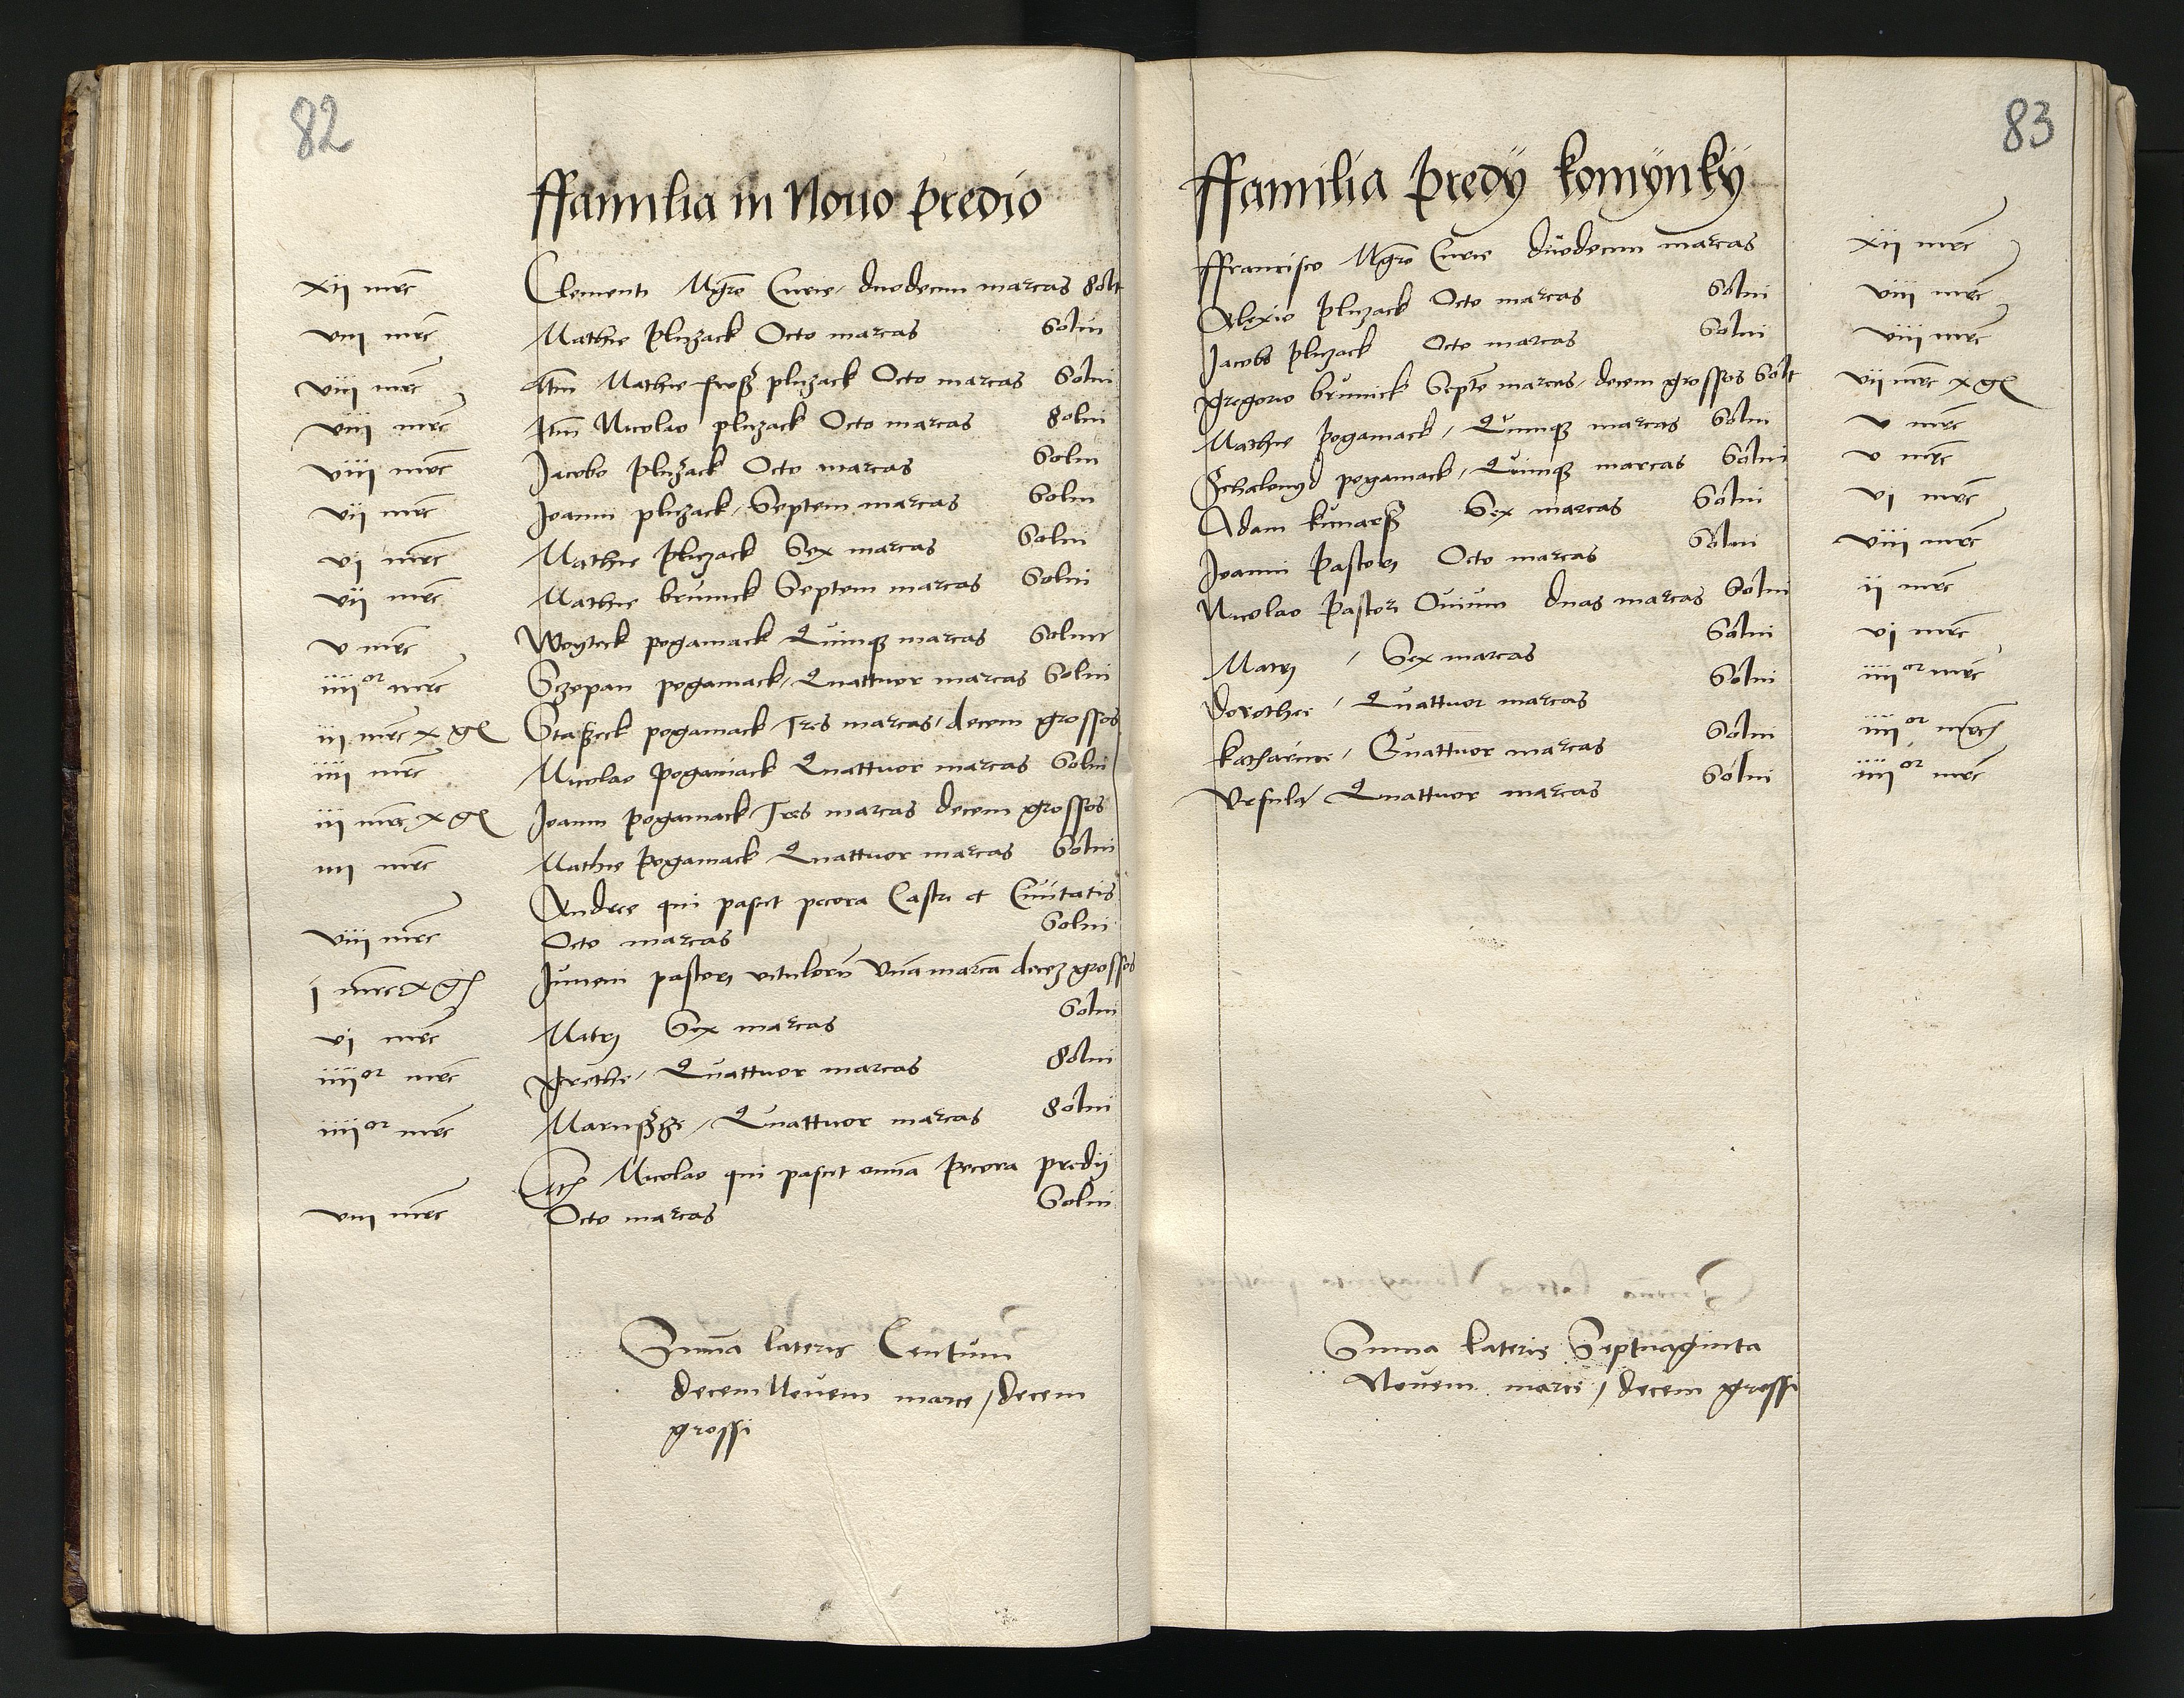 82
ffamilia in Nouo predio
xii mrc Clementi Mgro Curie / duodecim marcas Solt
viii mrc Mathie pluzack Octo marcas Solui
viii mrc Itm Mathie pluzack Octo marcas Solui
viii mrc Itm Nicolao pluzack Octo marcas Solui
viii mrc Jacobo pluzack Octo marcas Solui
vii mrc Joanni pluzack / Septem marcas Solui
vi mrc Mathie pluzack Sex marcas Solui
vii mrc Mathie brunick Septem marcas Solui
v mrc Woyteck poganiack Quinq marcas Solui
iiii or mrc Sczepan poganiack / Quattuor marcas Solui
iii mrc x g Staßeck poganiack / Tres marcas / decem grossos
iiii mrc Nicolao poganiack Quattuor marcas Solui
iii mrc x g Joanni poganiack Tres marcas decem grossos
iiii mrc Mathie poganiack Quattuor marcas Solui
Andree qui pascit pecora Castri et Ciuitatis
viii mrc Octo marcas Solui
i mrc x g Juueni pastori vitulorū Vnā marcā decez grossos
vi mrc Matri Sex marcas Solui
iiii or mrc Grethe / Quattuor marcas Solui
iiii or mrc Quattuor marcas Solui
Nicolao qui pascit omīa pecora predij
viii mrc Octo marcas Solui
Suma lateris Centum
decem Nouem marce / decem
grossi
83
ffamilia predÿ komÿnkÿ
ffrancisco Mgro Curie duodecim marcas xii mrc
Alexio pluzack Octo marcas Solui viii mrc
Jacobo pluzack Octo marcas Solui viii mrc
Gregorio brunick Septē marcas / decem grossos Solt vii mrc x g
Mathie poganiack / Quinq marcas Solui v mrc
poganiack / Quinq marcas Solui v mrc
Adam Sex marcas Solui vi mrc
Joanni pastori Octo marcas Solui viii mrc
Nicolao pastori Ouium duas marcas Solui ii mrc
Matri / Sex marcas Solui vi mrc
Dorothee / Quattuor marcas Solui iiii or mrc
katharine / Quattuor marcas Solui iiii or mrc
Vrsula / Quattuor marcas Solui iiii or mrc
Suma lateris Septuaginta
Nouem marce / decem grossi